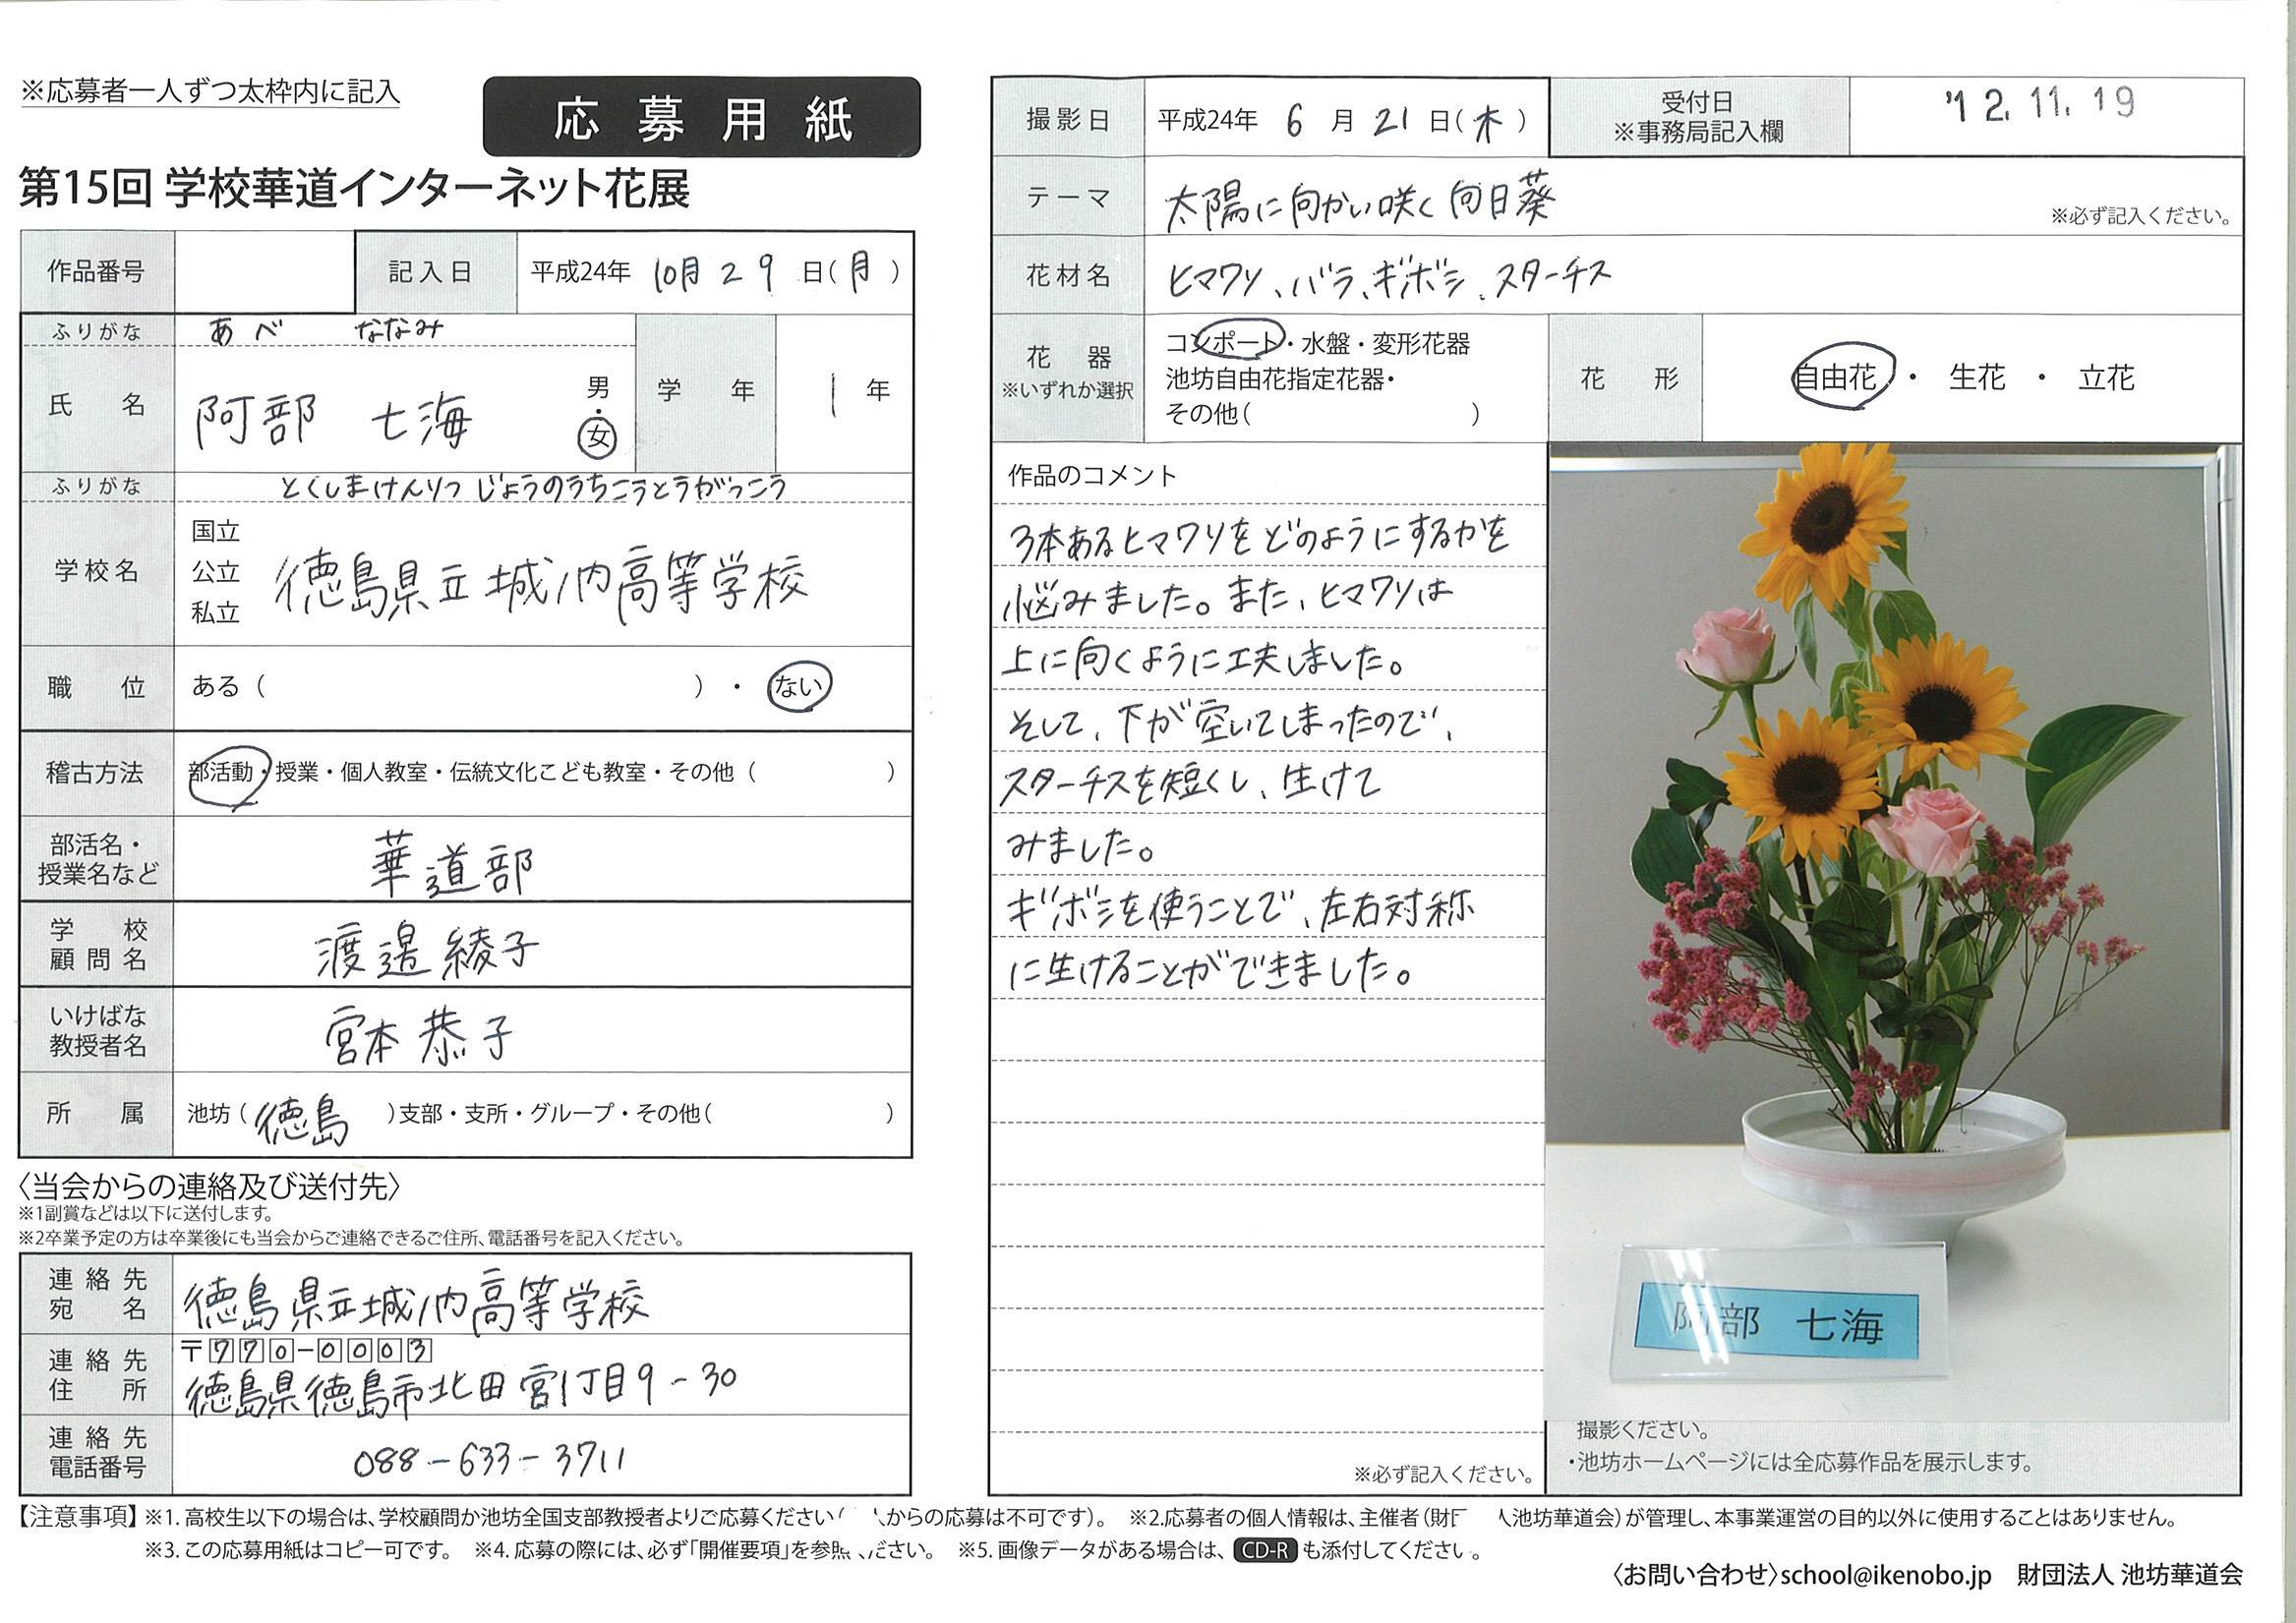 ※応募者一人ずつ太枠内に記入
応募用紙
第15回 学校華道インターネット花展
作品番号
記入日 平成24年 10月 29 日(月)
ふりがな あべ ななみ
氏名 阿部 七海 男・女
学年 1 年
ふりがな とくしまけんりつ じょうのうちこうとうがっこう
学校名 国立 公立 私立 徳島県立城ノ内高等学校
職位 ある( )・ない
稽古方法 部活動・授業・個人教室・伝統文化こども教室・その他( )
部活名・授業名など 華道部
学校顧問名 渡邉綾子
いけばな教授者名 宮本恭子
所属 池坊(徳島)支部・支所・グループ・その他( )
〈当会からの連絡及び送付先〉
※1副賞などは以下に送付します。
※2卒業予定の方は卒業後にも当会からご連絡できるご住所、電話番号を記入ください。
連絡先宛名 徳島県立城ノ内高等学校
連絡先住所 〒770-0003
徳島県徳島市北田宮1丁目9-30
連絡先電話番号 088-633-3711
撮影日 平成24年 6月 21日(木)
受付日
※事務局記入欄
'12.11.19
テーマ 太陽に向かい咲く向日葵
※必ず記入ください。
花材名 ヒマワリ、バラ、ギボシ、スターチス
花器
※いずれか選択
コンポート・水盤・変形花器
池坊自由花指定花器・
その他( )
花形 自由花・生花・立花
作品のコメント
3本あるヒマワリをどのようにするかを
悩みました。また、ヒマワリは
上に向くように工夫しました。
そして、下が空いてしまったので、
スターチスを短くし、生けて
みました。
ギボシを使うことで、左右対称
に生けることができました。
※必ず記入ください。
阿部 七海
撮影ください。
・池坊ホームページには全応募作品を展示します。
【注意事項】※1. 高校生以下の場合は、学校顧問か池坊全国支部教授者よりご応募ください( からの応募は不可です)。 ※2.応募者の個人情報は、主催者(財 人池坊華道会)が管理し、本事業運営の目的以外に使用することはありません。
※3. この応募用紙はコピー可です。 ※4. 応募の際には、必ず「開催要項」を参照ください。 ※5. 画像データがある場合は、CD-Rも添付してください。
〈お問い合わせ〉school@ikenobo.jp 財団法人 池坊華道会